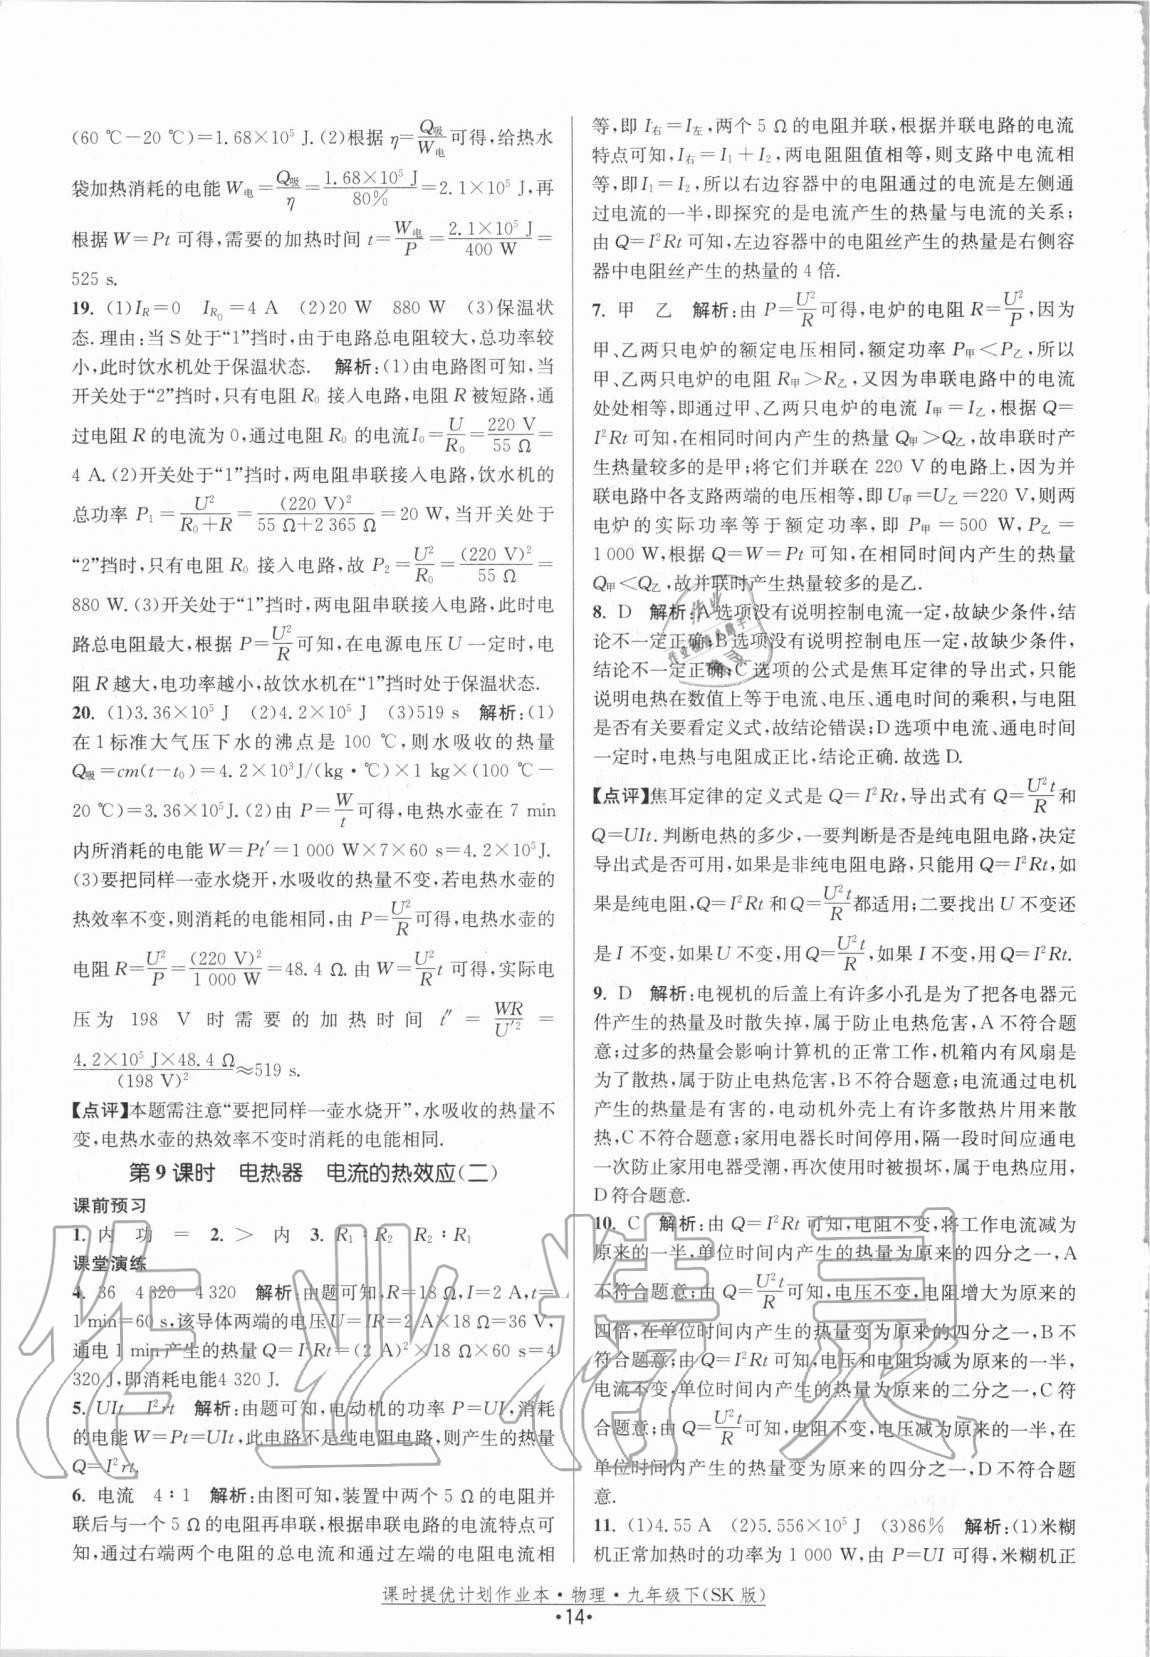 (60 ℃－20 ℃)＝1.68×10⁵ J.(2)根据 η＝Q吸/W电 可得,给热水
袋加热消耗的电能 W电＝Q吸/η＝1.68×10⁵ J/80%＝2.1×10⁵ J,再
根据 W＝Pt 可得,需要的加热时间 t＝W电/P＝2.1×10⁵ J/400 W＝
525 s.
19. (1)I_R＝0　I_R₀＝4 A　(2)20 W　880 W　(3)保温状
态.理由:当 S 处于“1”挡时,由于电路总电阻较大,总功率较
小,此时饮水机处于保温状态.　解析:(1)由电路图可知,当
开关处于“2”挡时,只有电阻 R₀ 接入电路,电阻 R 被短路,通
过电阻 R 的电流为 0,通过电阻 R₀ 的电流 I₀＝U/R₀＝220 V/55 Ω＝
4 A.(2)开关处于“1”挡时,两电阻串联接入电路,饮水机的
总功率 P₁＝U²/(R₀＋R)＝(220 V)²/(55 Ω＋2 365 Ω)＝20 W,当开关处于
“2”挡时,只有电阻 R₀ 接入电路,故 P₂＝U²/R₀＝(220 V)²/55 Ω＝
880 W.(3)开关处于“1”挡时,两电阻串联接入电路,此时电
路总电阻最大,根据 P＝U²/R 可知,在电源电压 U 一定时,电
阻 R 越大,电功率越小,故饮水机在“1”挡时处于保温状态.
20. (1)3.36×10⁵ J　(2)4.2×10⁵ J　(3)519 s　解析:(1)
在 1 标准大气压下水的沸点是 100 ℃,则水吸收的热量
Q吸＝cm(t－t₀)＝4.2×10³J/(kg·℃)×1 kg×(100 ℃－
20 ℃)＝3.36×10⁵J.(2)由 P＝W/t 可得,电热水壶在 7 min
内所消耗的电能 W＝Pt′＝1 000 W×7×60 s＝4.2×10⁵J.
(3)要把同样一壶水烧开,水吸收的热量不变,若电热水壶的
热效率不变,则消耗的电能相同,由 P＝U²/R 可得,电热水壶的
电阻 R＝U²/P＝(220 V)²/1 000 W＝48.4 Ω.由 W＝U²/R t 可得,实际电
压为 198 V 时需要的加热时间 t″＝WR/U′²＝
4.2×10⁵ J×48.4 Ω/(198 V)²≈519 s.
【点评】本题需注意“要把同样一壶水烧开”,水吸收的热量不
变,电热水壶的热效率不变时消耗的电能相同.
第 9 课时　电热器　电流的热效应(二)
课前预习
1. 内　功　＝　2. ＞　内　3. R₁∶R₂　R₂∶R₁
课堂演练
4. 36　4 320　4 320　解析:由题可知,R＝18 Ω,I＝2 A,t＝
1 min＝60 s,该导体两端的电压 U＝IR＝2 A×18 Ω＝36 V,
通电 1 min 产生的热量 Q＝I²Rt＝(2 A)²×18 Ω×60 s＝4
320 J,即消耗电能4 320 J.
5. UIt　I²rt　解析:由题可知,电动机的功率 P＝UI,消耗
的电能 W＝Pt＝UIt,此电路不是纯电阻电路,则产生的热量
Q＝I²rt.
6. 电流　4∶1　解析:由图可知,装置中两个 5 Ω 的电阻并
联后与一个 5 Ω 的电阻再串联,根据串联电路的电流特点可
知,通过右端两个电阻的总电流和通过左端的电阻电流相
等,即 I右＝I左,两个 5 Ω 的电阻并联,根据并联电路的电流
特点可知,I右＝I₁＋I₂,两电阻阻值相等,则支路中电流相
等,即 I₁＝I₂,所以右边容器中的电阻通过的电流是左侧通
过电流的一半,即探究的是电流产生的热量与电流的关系;
由 Q＝I²Rt 可知,左边容器中的电阻丝产生的热量是右侧容
器中电阻丝产生的热量的 4 倍.
7. 甲　乙　解析:由 P＝U²/R 可得,电炉的电阻 R＝U²/P,因为
甲、乙两只电炉的额定电压相同,额定功率 P甲＜P乙,所以
甲、乙两只电炉的电阻 R甲＞R乙,又因为串联电路中的电流
处处相等,即通过甲、乙两只电炉的电流 I甲＝I乙,根据 Q＝
I²Rt 可知,在相同时间内产生的热量 Q甲＞Q乙,故串联时产
生热量较多的是甲;将它们并联在 220 V 的电路上,因为并
联电路中各支路两端的电压相等,即 U甲＝U乙＝220 V,则两
电炉的实际功率等于额定功率,即 P甲＝500 W,P乙＝
1 000 W,根据 Q＝W＝Pt 可知,在相同时间内产生的热量
Q甲＜Q乙,故并联时产生热量较多的是乙.
8. D　解析:A 选项没有说明控制电流一定,故缺少条件,结
论不一定正确;B 选项没有说明控制电压一定,故缺少条件,
结论不一定正确;C 选项的公式是焦耳定律的导出式,只能
说明电热在数值上等于电流、电压、通电时间的乘积,与电阻
是否有关要看定义式,故结论错误;D 选项中电流、通电时间
一定时,电热与电阻成正比,结论正确.故选 D.
【点评】焦耳定律的定义式是 Q＝I²Rt,导出式有 Q＝U²t/R 和
Q＝UIt.判断电热的多少,一要判断是否是纯电阻电路,决定
导出式是否可用,如果是非纯电阻电路,只能用 Q＝I²Rt,如
果是纯电阻,Q＝I²Rt 和 Q＝U²t/R 都适用;二要找出 U 不变还
是 I 不变,如果 U 不变,用 Q＝U²t/R,如果 I 不变,用 Q＝I²Rt.
9. D　解析:电视机的后盖上有许多小孔是为了把各电器元
件产生的热量及时散失掉,属于防止电热危害,A 不符合题
意;过多的热量会影响计算机的正常工作,机箱内有风扇是
为了散热,属于防止电热危害,B 不符合题意;电流通过电机
产生的热量是有害的,电动机外壳上有许多散热片用来散
热,C 不符合题意;家用电器长时间停用,隔一段时间应通电
一次防止家用电器受潮,时机被损坏,属于电热应用,
D 符合题意.
10. C　解析:由 Q＝I²Rt 可知,电阻不变,将工作电流减为
原来的一半,单位时间内产生的热量为原来的四分之一,A
不符合题意;由 Q＝U²t/R 可知,电压不变,电阻增大为原来的
四倍,在单位时间内产生的热量变为原来的四分之一,B 不
符合题意;由 Q＝I²Rt 可知,电压和电阻均减为原来的一半,
电流不变,单位时间内产生的热量为原来的二分之一,C 符
合题意;由 Q＝U²t/R 可知,电阻不变,电压减为原来的一半,在
单位时间内产生的热量变为原来的四分之一,D 不符合题
意.
11. (1)4.55 A　(2)5.556×10⁵ J　(3)86%　解析:(1)米糊
机正常加热时的功率为 1 000 W,由 P＝UI 可得,米糊机正
课时提优计划作业本·物理·九年级下(SK 版)
·14·
作业精灵